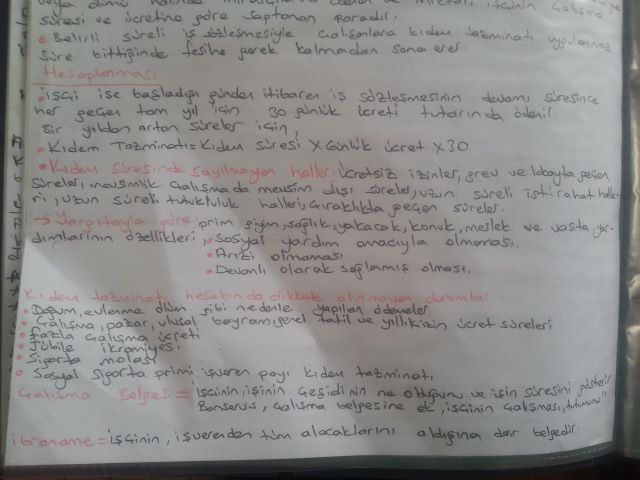 veya ölümü halinde mirasçılarına ödenen ve miktarı, işçinin çalışma
süresi ve ücretine göre saptanan paradır.
• Belirli süreli iş sözleşmesiyle çalışanlara kıdem tazminatı uygulanmaz
süre bittiğinde feshe gerek kalmadan sona erer.
Hesaplanması
• işçi işe başladığı günden itibaren iş sözleşmesinin devamı süresince
her geçen tam yıl için 30 günlük ücreti tutarında ödenir
Bir yıldan artan süreler için,
• Kıdem Tazminatı = Kıdem süresi X Günlük ücret X 30
• Kıdem Süresinde sayılmayan haller: Ücretsiz izinler, grev ve lokavtta geçen
süreler, mevsimlik çalışmada mevsim dışı süreler, uzun süreli istirahat halle-
ri, uzun süreli tutukluluk halleri, Çıraklıkta geçen süreler.
→ Yargıtay'a göre; prim, giyim, sağlık, yakacak, konut, meslek ve vasıta yar-
dımlarının özellikleri; • Sosyal yardım amacıyla olmaması.
• Arızi olmaması
• Devamlı olarak sağlamış olması.
Kıdem tazminatı hesabında dikkate alınmayan durumlar
• Doğum, evlenme ölüm gibi nedenle yapılan ödemeler
• Çalışma, pazar, ulusal bayram, genel tatil ve yıllık izin ücret süreleri
• Fazla çalışma ücreti
• Jübile ikramiyesi
• Sigorta
• Sosyal Sigorta primi işveren payı kıdem tazminatı
Çalışma Belgesi = işçinin, işinin çeşidinin ne olduğunu ve işin süresini gösterir.
Bonservis, çalışma belgesine ek, işçinin çalışması, tutumunu!!
ibraname = işçinin, işverenden tüm alacaklarını aldığına dair belgedir.